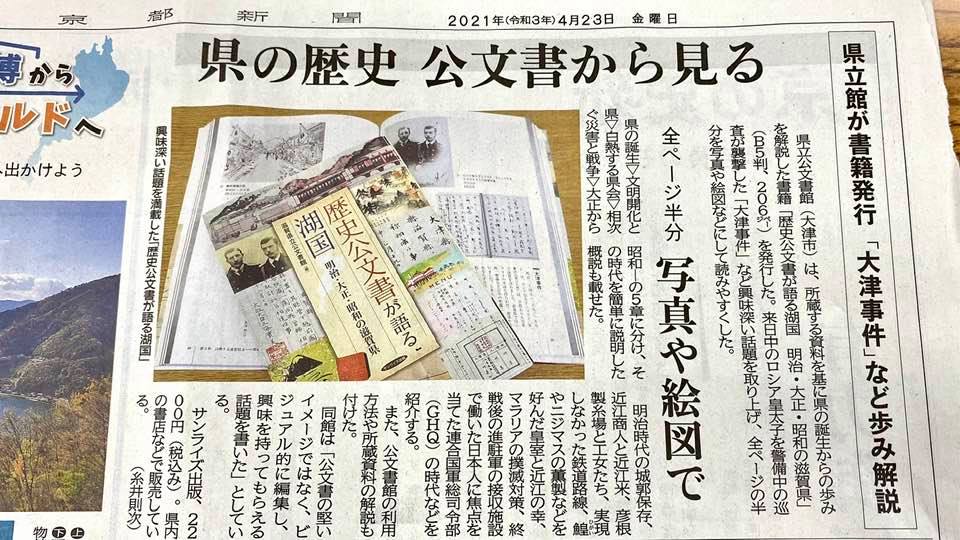 京都新聞
2021年(令和3年)4月23日 金曜日
県の歴史 公文書から見る
県立館が書籍発行 「大津事件」など歩み解説
全ページ半分 写真や絵図で
県立公文書館(大津市)は、所蔵する資料を基に県の誕生からの歩み
を解説した書籍「歴史公文書が語る湖国 明治・大正・昭和の滋賀県」
(B5判、206㌻)を発行した。来日中のロシア皇太子を警備中の巡
査が襲撃した「大津事件」など興味深い話題を取り上げ、全ページの半
分を写真や絵図などにして読みやすくした。
県の誕生▽文明開化と
県▽白熱する県会▽相次
ぐ災害と戦争▽大正から
昭和―の5章に分け、そ
の時代を簡単に説明した
概説も載せた。
明治時代の城郭保存、
近江商人と近江米、彦根
製糸場と工女たち、実現
しなかった鉄道路線、鱒
やニジマスの薫製などを
好んだ皇室と近江の幸、
マラリアの撲滅対策、終
戦後の進駐軍の接収施設
で働いた日本人に焦点を
当てた連合国軍総司令部
(GHQ)の時代などを
紹介する。
また、公文書館の利用
方法や所蔵資料の解説も
付けた。
同館は「公文書の堅い
イメージではなく、ビ
ジュアル的に編集し、
興味を持ってもらえる
話題を書いた」としてい
る。
サンライズ出版、22
00円(税込み)。県内
の書店などで販売してい
る。
(糸井則次)
興味深い話題を満載した「歴史公文書が語る湖国」
歴史公文書が語る
湖国
明治・大正・昭和の滋賀県
博から
ルドへ
出かけよう
物下上